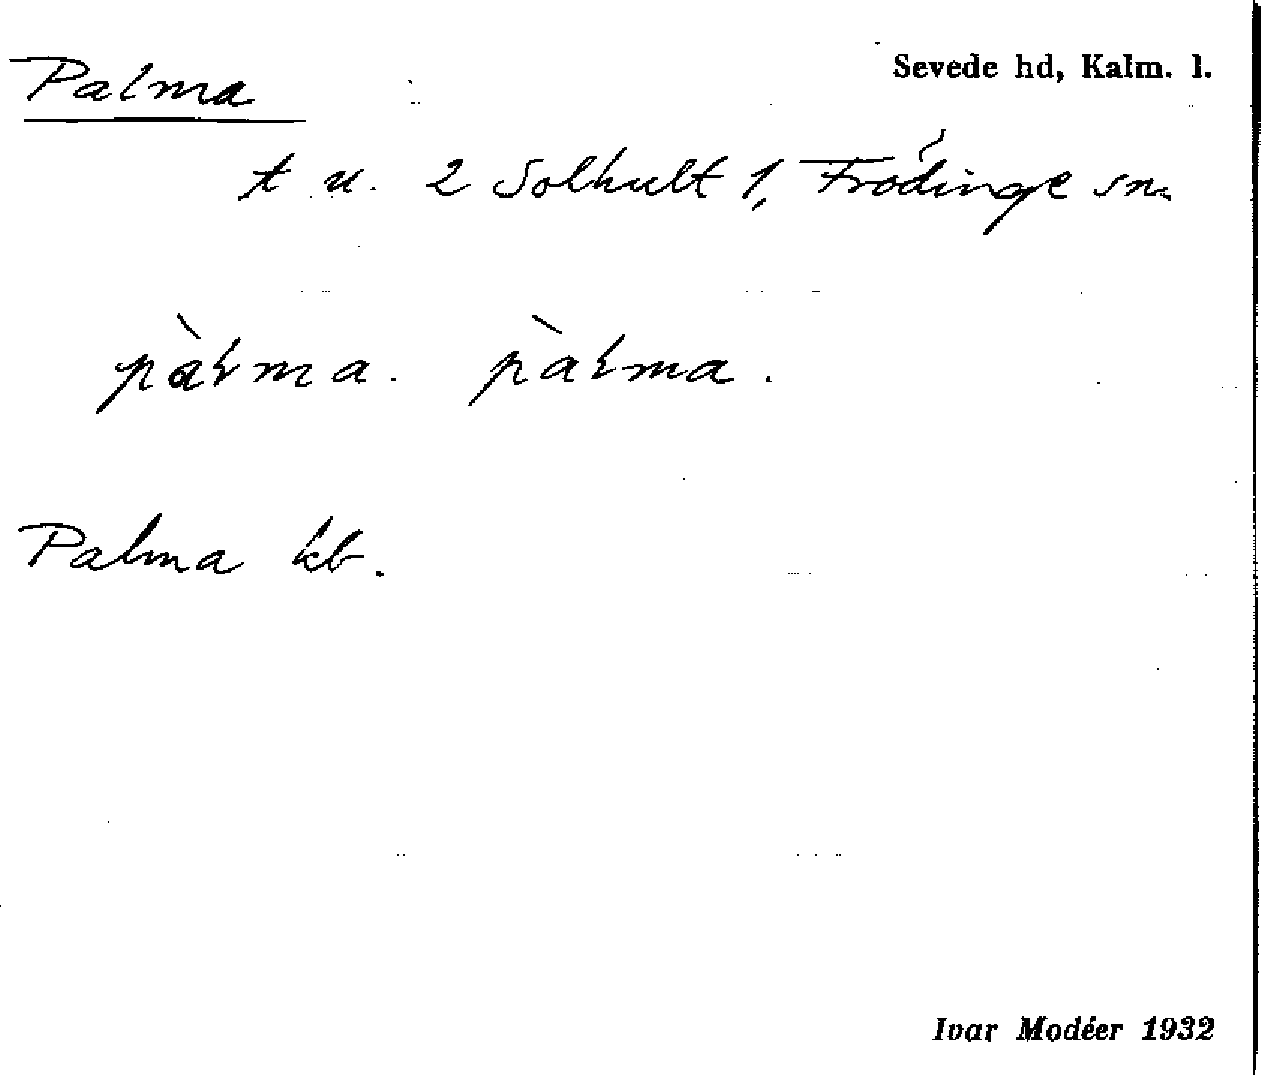 Sevede hd, Kalm. l.
Palma
t u. 2 Solhult 1, Frödinge sn.
pàłma. pàłma.
Palma kb.
Ivar Modéer 1932